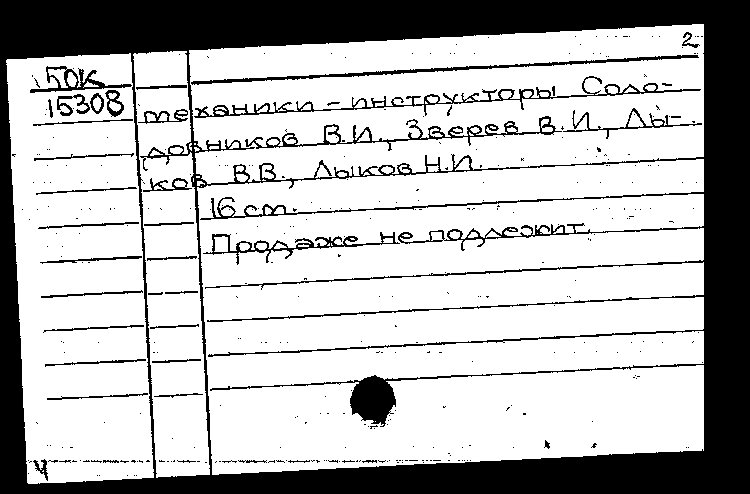 2
50К
15308
механики - инструкторы Соло-
довников В.И., Зверев В.И., Лы-
ков В.В., Лыков Н.И.
16 см.
Продаже не подлежит.
Ч